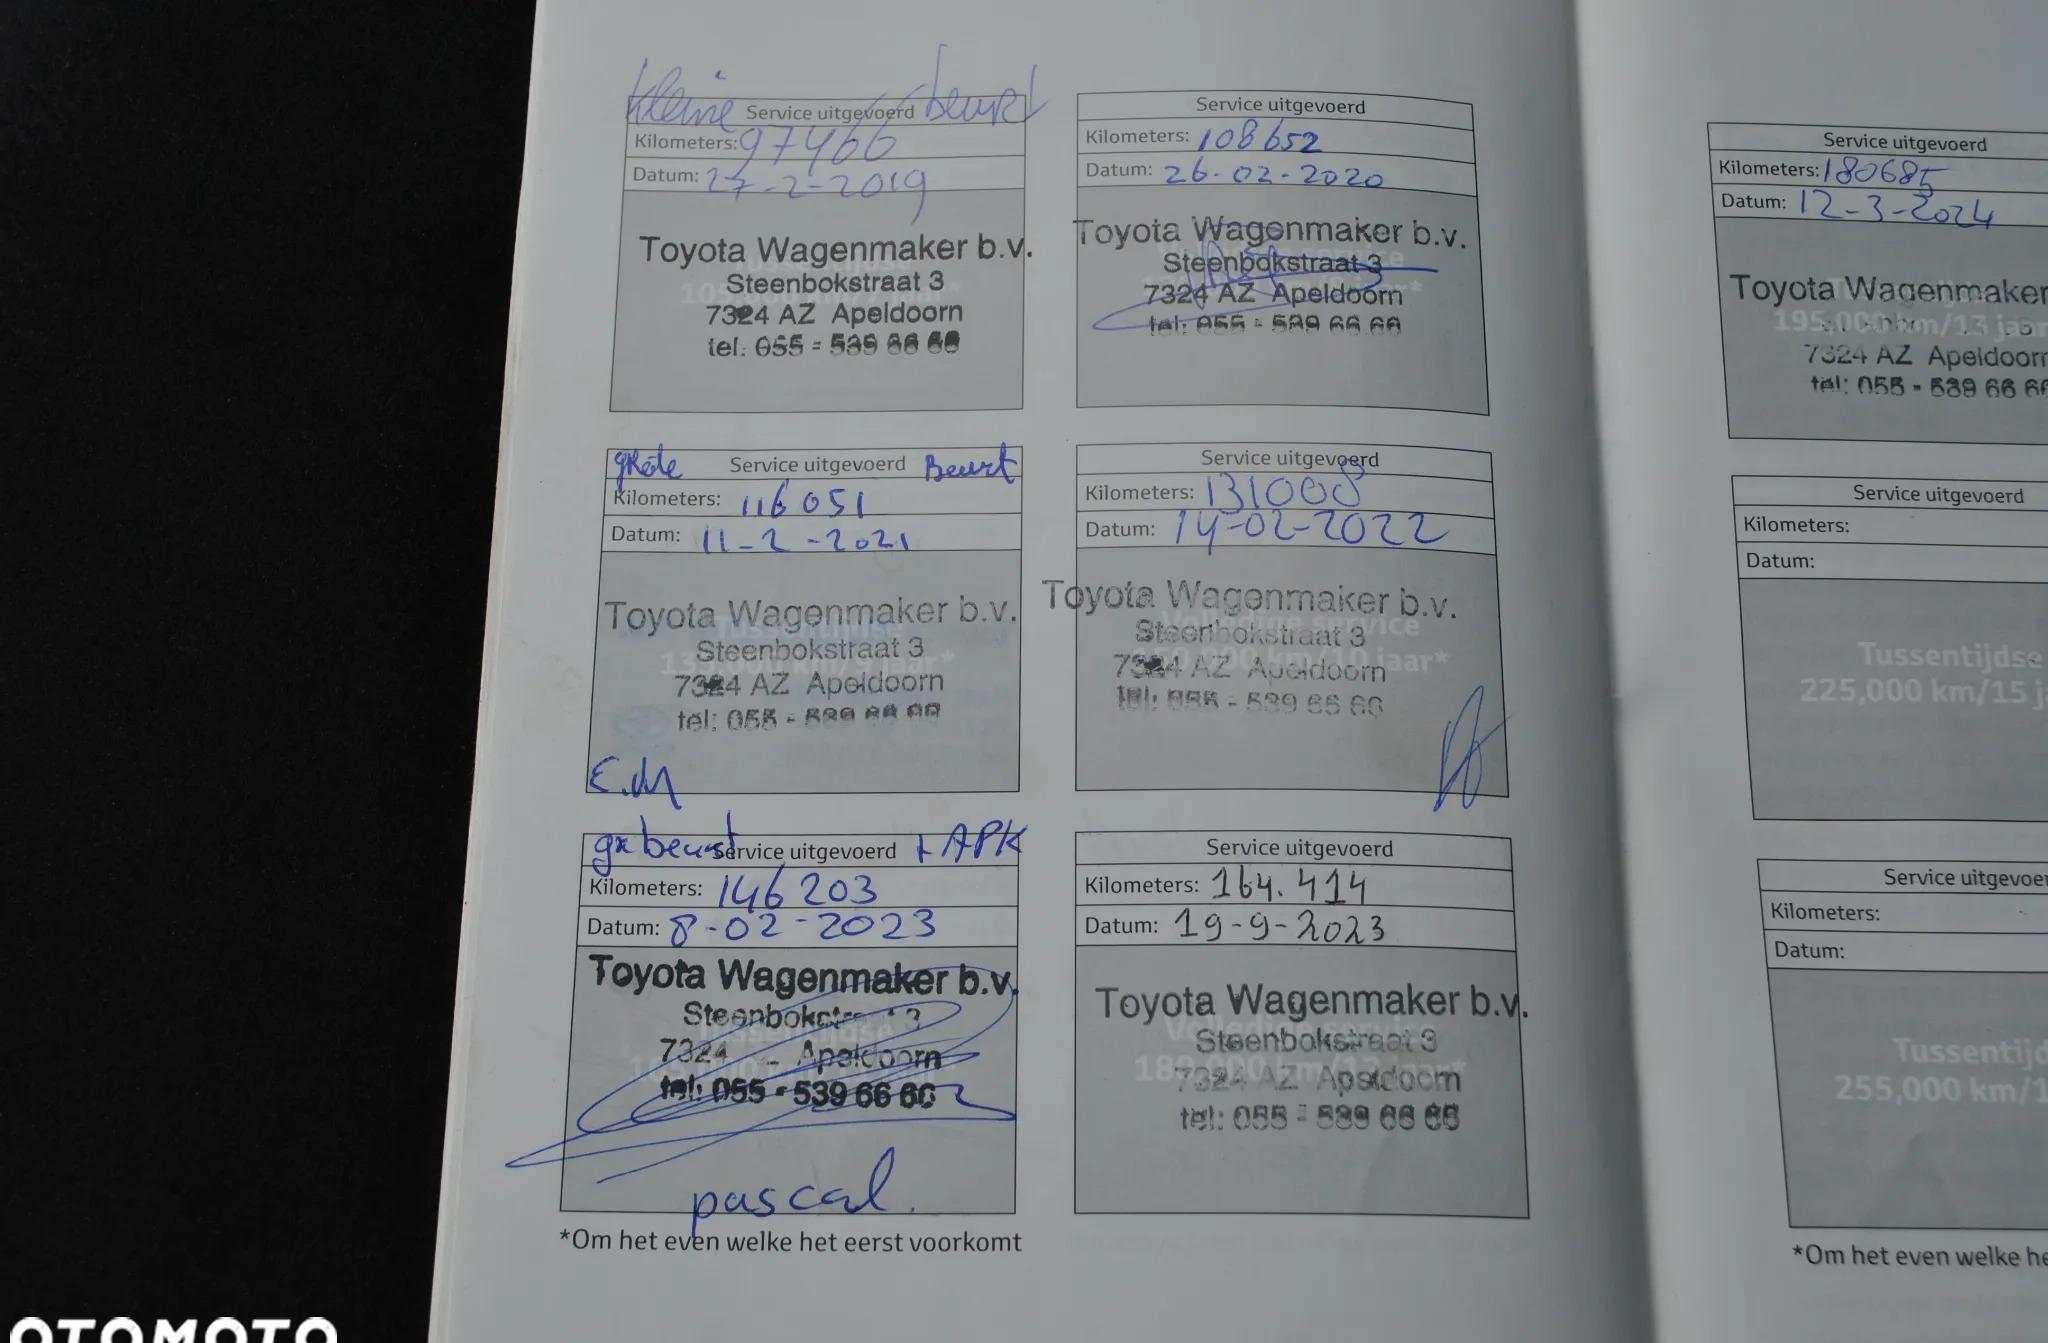 Kleine Service uitgevoerd beurt
Kilometers: 97466
Datum: 27-2-2019
Toyota Wagenmaker b.v.
Steenbokstraat 3
7324 AZ Apeldoorn
tel: 055 - 539 66 60
Service uitgevoerd
Kilometers: 108652
Datum: 26-02-2020
Toyota Wagenmaker b.v.
Steenbokstraat 3
7324 AZ Apeldoorn
tel: 055 - 539 66 60
grote Service uitgevoerd Beurt
Kilometers: 116 051
Datum: 11-2-2021
Toyota Wagenmaker b.v.
Steenbokstraat 3
7324 AZ Apeldoorn
tel: 055 - 539 66 60
E.M
Service uitgevoerd
Kilometers: 131008
Datum: 14-02-2022
Toyota Wagenmaker b.v.
Steenbokstraat 3
7324 AZ Apeldoorn
tel: 055 - 539 66 60
gr beurt Service uitgevoerd + APK
Kilometers: 146 203
Datum: 8-02-2023
Toyota Wagenmaker b.v.
Steenbokstraat 3
7324 Apeldoorn
tel: 055 - 539 66 60
pascal.
Service uitgevoerd
Kilometers: 164.414
Datum: 19-9-2023
Toyota Wagenmaker b.v.
Steenbokstraat 3
7324 AZ Apeldoorn
tel: 055 - 539 66 60
*Om het even welke het eerst voorkomt
Service uitgevoerd
Kilometers: 180685
Datum: 12-3-2024
Toyota Wagenmaker
195,000 km/13 jaar
7324 AZ Apeldoorn
tel: 055 - 539 66 60
Service uitgevoerd
Kilometers:
Datum:
Tussentijdse
225,000 km/15 j
Service uitgevoer
Kilometers:
Datum:
Tussentijd
255,000 km/1
*Om het even welke he
OTOMOTO